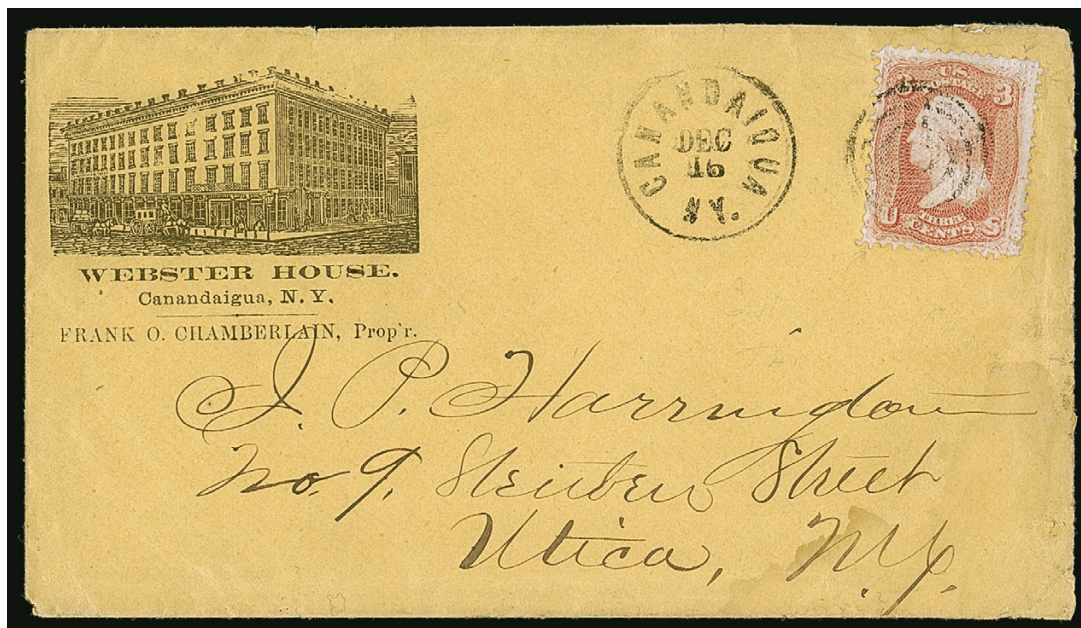 WEBSTER HOUSE.
Canandaigua, N. Y.
FRANK O. CHAMBERLAIN, Prop'r.
CANANDAIGUA
DEC
16
N.Y.
U.S.
POSTAGE
3
U
THREE
CENTS
S
J. P. Harrington
No. 9. Steuben Street
Utica, N.Y.